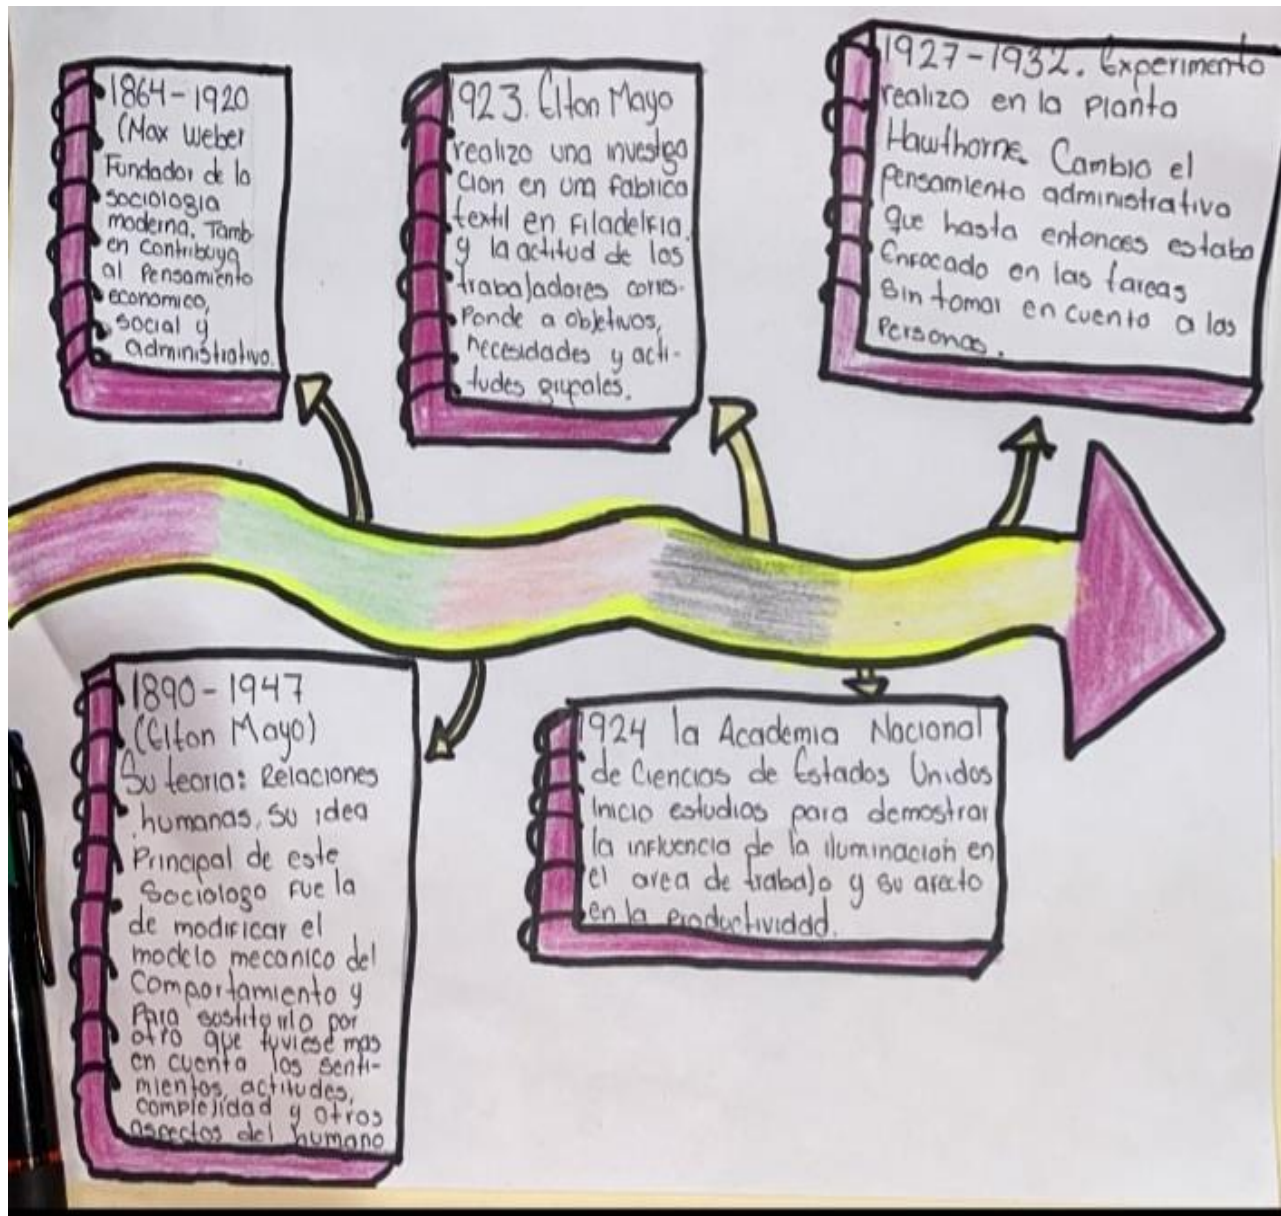 1864-1920
(Max Weber
Fundador de la
sociologia
moderna. Tamb
en contribuya
al Pensamiento
economico,
social y
administrativo.
1923. Elton Mayo
realizo una investiga
cion en una fabrica
textil en Filadelfia.
y la actitud de los
trabajadores corres-
Ponde a objetivos,
necesidades y acti-
tudes grupales.
1927-1932. Experimento
realizo en la Planta
Hawthorne. Cambio el
Pensamiento administrativo
que hasta entonces estaba
Enfocado en las tareas
Sin tomar en cuento a las
Personas.
1890-1947
(Elton Mayo)
Su teoria: Relaciones
humanas, su idea
Principal de este
Sociologo fue la
de modificar el
modelo mecanico del
Comportamiento y
Para sostituirlo por
otro que tuviese mas
en cuenta los senti-
mientos, actitudes,
complejidad y otros
aspectos del humano
1924 la Academia Nacional
de Ciencias de Estados Unidos
Inicio estudios para demostrar
la influencia de la iluminacion en
el area de trabajo y su afecto
en la Productividad.